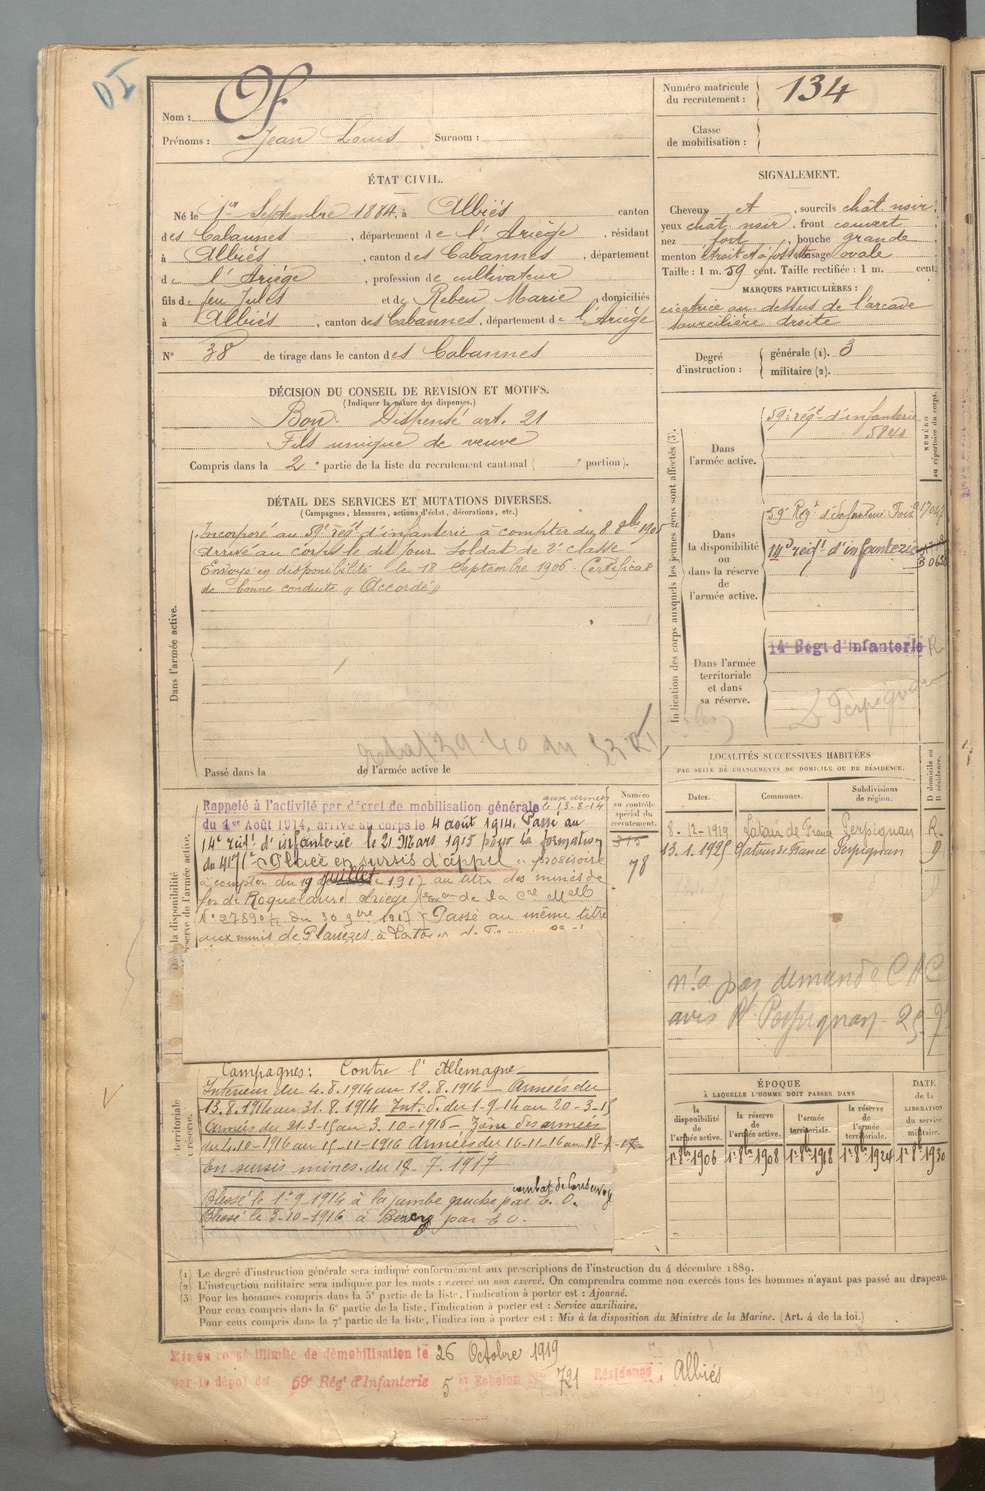 Nom : Of
Prénoms : Jean Louis Surnom :
Numéro matricule du recrutement : 134
Classe de mobilisation :
ÉTAT CIVIL.
Né le 1er Septembre 1884, à Albiés canton
des Cabannes, département de l'Ariège, résidant
à Albiés, canton des Cabannes, département
de l'Ariège, profession de cultivateur
fils de feu Jules et de Rebeu Marie domiciliés
à Albiés, canton des Cabannes, département de l'Ariège
N° 38 de tirage dans le canton des Cabannes
SIGNALEMENT.
Cheveux et, sourcils chât noir,
yeux chât noir, front couvert
nez fort, bouche grande
menton étroit visage ovale
Taille : 1 m. 59 cent. Taille rectifiée : 1 m. cent.
MARQUES PARTICULIÈRES :
cicatrice au-dessus de l'arcade
sourcilière droite
Degré d'instruction : générale (1). 3
militaire (2).
DÉCISION DU CONSEIL DE REVISION ET MOTIFS.
(Indiquer la nature des dispenses.)
Bon. Dispensé art. 21
Fils unique de veuve
Compris dans la 2e partie de la liste du recrutement cantonal ( e portion).
DÉTAIL DES SERVICES ET MUTATIONS DIVERSES.
(Campagnes, blessures, actions d'éclat, décorations, etc.)
Dans l'armée active.
Incorporé au 59e régt d'infanterie à compter du 8 8bre 1905
Arrivé au corps le dit jour. Soldat de 2e classe
Envoyé en disponibilité le 18 Septembre 1906. Certificat
de bonne conduite « Accordé »
Passé dans la de l'armée active le
Indication des corps auxquels les jeunes gens sont affectés (3).
NUMÉRO au répertoire du corps.
Dans l'armée active.
59e régt d'infanterie
Dans la disponibilité ou dans la réserve de l'armée active.
59e Régt d'Infanterie Foix
régt d'infanterie
Dans l'armée territoriale et dans sa réserve.
14e Régt d'Infanterie R
LOCALITÉS SUCCESSIVES HABITÉES
PAR SUITE DE CHANGEMENTS DE DOMICILE OU DE RÉSIDENCE.
Dates. Communes. Subdivisions de région. D domicile ou R résidence.
8-12-1919 Latour de France Perpignan R.
13.1.1925 Latour de France Perpignan D
n'a pas demandé C A C
avis Rt Perpignan
Numéro au contrôle spécial du recrutement.
315
78
Dans la disponibilité
réserve de l'armée active.
Rappelé à l'activité par décret de mobilisation générale aux armées le 13-8-14
du 1er Août 1914, arrivé au corps le 4 août 1914. Passé au
14e régt d'infanterie le 21 Mars 1915 pour la formation
du 417e. Placé en sursis d'appel « provisoire
à compter du 19 juillet 1917 au titre des mines de
fer de Roquelaure Ariège
N° 27890 du 30 9bre 1917 Passé au même titre
aux mines de Planèzes à
territoriale
réserve.
Campagnes : Contre l'Allemagne
Intérieur du 4.8.1914 au 12.8.1914 - Armées du
13.8.1914 au 31.8.1914 Int. d. du 1-9-14 au 20-3-15
Armées du 21-3-15 au 3.10-1916 - Zône des armées
du 4.10-1916 au 15-11-1916 Armées du 16-11-16 au 18-7-17
En sursis mines. du 19.7.1917
Blessé le 1er 9 1914 à la jambe gauche par E. O.
Blessé le 3-10-1916 à Berny par E O.
ÉPOQUE
À LAQUELLE L'HOMME DOIT PASSER DANS
la disponibilité de l'armée active. la réserve de l'armée active. l'armée territoriale. la réserve de l'armée territoriale.
DATE de la LIBÉRATION du service militaire.
1er 8bre 1906 1er 8bre 1908 1er 8bre 1918 1er 8bre 1924 1er 8bre 1930
(1) Le degré d'instruction générale sera indiqué conformément aux prescriptions de l'instruction du 4 décembre 1889.
(2) L'instruction militaire sera indiquée par les mots : exercé ou non exercé. On comprendra comme non exercés tous les hommes n'ayant pas passé au drapeau.
(3) Pour les hommes compris dans la 5e partie de la liste, l'indication à porter est : Ajourné.
Pour ceux compris dans la 6e partie de la liste, l'indication à porter est : Service auxiliaire.
Pour ceux compris dans la 7e partie de la liste, l'indication à porter est : Mis à la disposition du Ministre de la Marine. (Art. 4 de la loi.)
Mis en congé illimité de démobilisation le 26 Octobre 1919
par le dépôt du 59e Rég' d'Infanterie 5e Echelon N° 721 Résidence Albiés